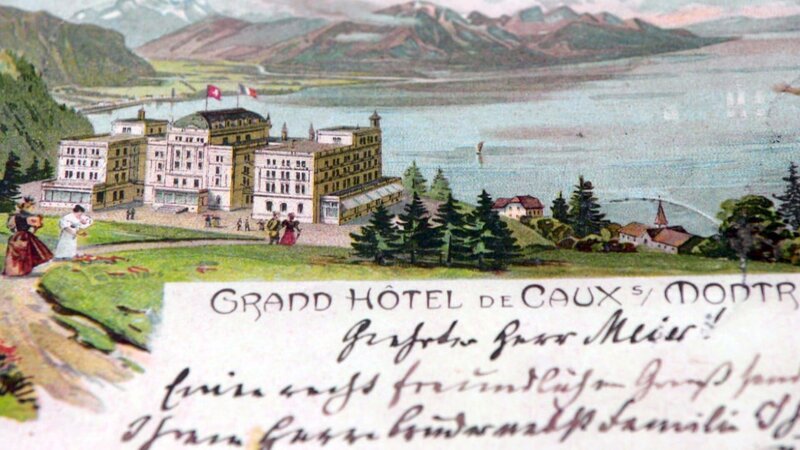 GRAND HÔTEL DE CAUX s/ MONTR
Geehrter Herr Meier!
Einen recht freundlichen Gruß send
Ihrem Herrn Bruder nebst Familie